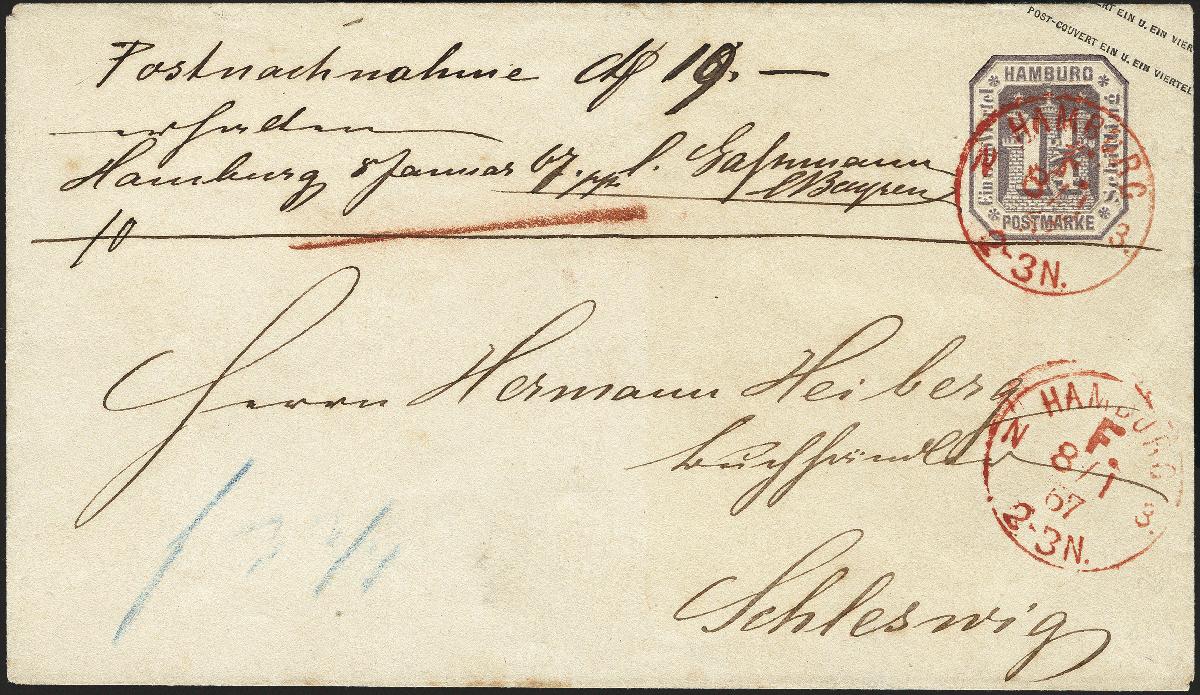 ERT EIN U. EIN VIER
POST-COUVERT EIN U. EIN VIERTEL
Postnachnahme 19. —
erhalten
Hamburg 8 Januar 67. ppe
10
HAMBURG
Schilling
POSTMARKE
N HAMBURG
2-3N.
3.
Herrn Hermann Heiberg
Buchhändler
Schleswig
N HAMBURG
F.
8/1
67
2-3N.
3.